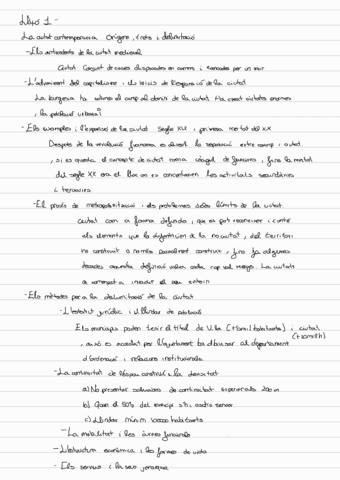 Lliçó 1 -
La ciutat contemporània. Orígens, límits i delimitació
- Els antecedents de la ciutat medieval
Ciutat: Conjunt de cases disposades en carrers i tancades per un mur
- L'adveniment del capitalisme i els inicis de l'expansió de la ciutat
La burgesia ha sotmès el camp al domini de la ciutat. Ha creat ciutats enormes
, la població urbana
- Els eixamples i l'expansió de la ciutat segle XIX i primera meitat del XX
Després de la revolució francesa es dilueix la separació entre camp i ciutat
, si es queda el concepte de ciutat com a de funcions, fins la meitat
del segle XX era el lloc on es concentraven les activitats secundàries
i terciàries
- El procés de metropolitització i els problemes dels límits de la ciutat.
Ciutat com a forma definida, que es pot reconèixer i conté
els elements que la diferencien de la no ciutat, del territori
no construït o només parcialment construït, fins fa algunes
dècades aquesta definició valia cada cop val menys. La ciutat
a començat a invadir el seu entorn
- Els mètodes per a la delimitació de la ciutat
- L'estatut jurídic i el llindar de població
Els municipis poden tenir el títol de Vila (+5 mil habitants) i ciutat
, això és acordat per l'ajuntament ha d'avisar al departament
d'ordenació i relacions institucionals
- La continuitat de l'espai construït i la densitat
a) No presentar solucions de continuïtat superiors 200 m
b) Que el 50% del municipi
c) Llindar mínim 10000 habitants
- La mobilitat i les àrees funcionals
- L'estructura econòmica i les formes de vida
- Els serveis i la seva jerarquia